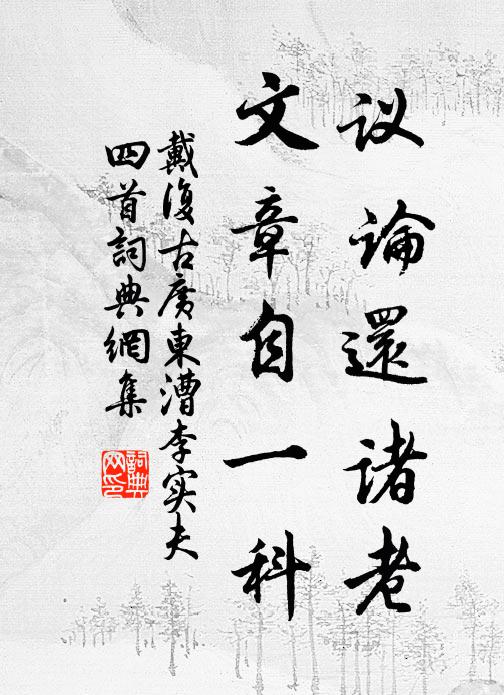 议論還诸老
文章自一科
戴復古廣東漕李实夫
四首詞典網集
詞典
网印